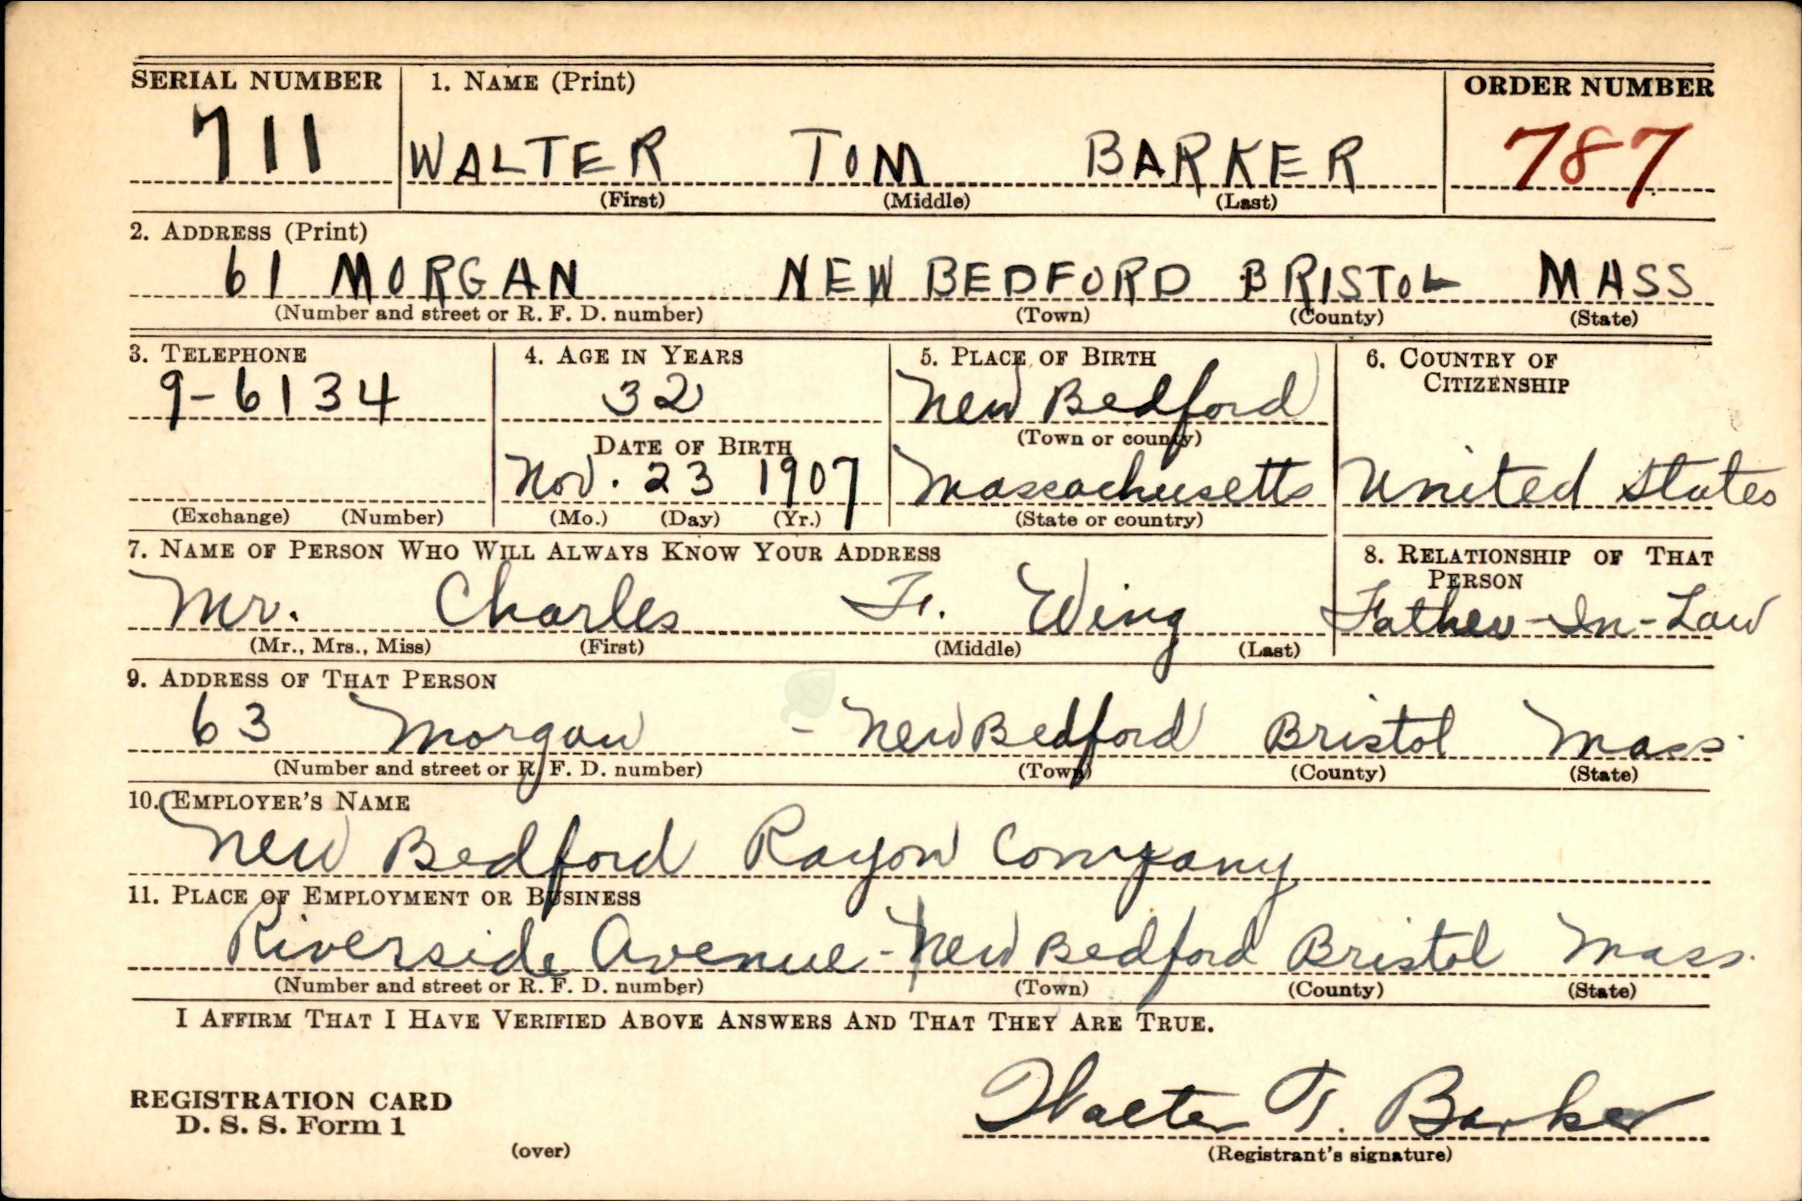 SERIAL NUMBER 1. NAME (Print) ORDER NUMBER
711 WALTER TOM BARKER 787
(First) (Middle) (Last)
2. ADDRESS (Print)
61 MORGAN NEW BEDFORD BRISTOL MASS
(Number and street or R. F. D. number) (Town) (County) (State)
3. TELEPHONE 4. AGE IN YEARS 5. PLACE OF BIRTH 6. COUNTRY OF
CITIZENSHIP
9-6134 32 New Bedford
DATE OF BIRTH (Town or county)
Nov. 23 1907 Massachusetts United States
(Exchange) (Number) (Mo.) (Day) (Yr.) (State or country)
7. NAME OF PERSON WHO WILL ALWAYS KNOW YOUR ADDRESS 8. RELATIONSHIP OF THAT
PERSON
Mr. Charles F. Wing Father-In-Law
(Mr., Mrs., Miss) (First) (Middle) (Last)
9. ADDRESS OF THAT PERSON
63 Morgan - New Bedford Bristol Mass.
(Number and street or R. F. D. number) (Town) (County) (State)
10. EMPLOYER'S NAME
New Bedford Rayon Company
11. PLACE OF EMPLOYMENT OR BUSINESS
Riverside Avenue - New Bedford Bristol Mass.
(Number and street or R. F. D. number) (Town) (County) (State)
I AFFIRM THAT I HAVE VERIFIED ABOVE ANSWERS AND THAT THEY ARE TRUE.
REGISTRATION CARD
D. S. S. Form 1 Walter T. Barker
(over) (Registrant's signature)